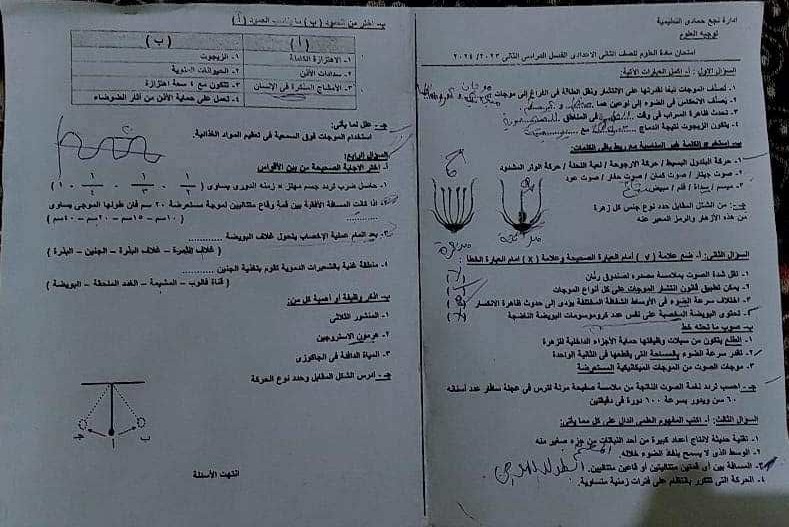 إدارة نجع حمادي التعليمية
توجيه العلوم
امتحان مادة العلوم للصف الثاني الاعدادي الفصل الدراسي الثاني ٢٠٢٣/ ٢٠٢٤
السؤال الأول : أ- أكمل العبارات الآتية:
١. تصنف الموجات تبعا لقدرتها على الانتشار ونقل الطاقة في الفراغ إلى موجات و
٢. يصنف الانعكاس في الضوء إلى نوعين هما و
٣. تحدث ظاهرة السراب في وقت في المناطق
٤. يتكون الزيجوت نتيجة اندماج مع
ب- استخرج الكلمة غير المناسبة مع ربط باقي الكلمات:
١- حركة البندول البسيط / حركة الارجوحة / لعبة النحلة / حركة الوتر المشدود
٢- صوت جيتار / صوت كمان / صوت حفار / صوت عود
٣- ميسم / سداة / قلم / مبيض
جـ- من الشكل المقابل حدد نوع جنس كل زهرة
من هذه الأزهار والرمز المعبر عنه
السؤال الثاني: أ- ضع علامة ( √ ) أمام العبارة الصحيحة وعلامة ( x ) امام العبارة الخطأ
١. تقل شدة الصوت بملامسة مصدره لصندوق رنان
٢. يمكن تطبيق قانون انتشار الموجات على كل أنواع الموجات
٣. اختلاف سرعة الضوء في الأوساط الشفافة المختلفة يؤدي إلى حدوث ظاهرة الانكسار
٤. تحتوى البويضة المخصبة على نفس عدد كروموسومات البويضة الناضجة
ب- صوب ما تحته خط
١. الطلع يتكون من سبلات وظيفتها حماية الأجزاء الداخلية للزهرة
٢- تقدر سرعة الضوء بالمسافة التي يقطعها في الثانية الواحدة
٣- موجات الصوت من الموجات الميكانيكية المستعرضة
جـ- احسب تردد نغمة الصوت الناتجة من ملامسة صفيحة مرنة لترس في عجلة سافار عدد أسنانه
٦٠ سن ويدور بسرعة ٦٠٠ دورة في دقيقتين
السؤال الثالث: أ- اكتب المفهوم العلمي الدال على كل مما يأتي:
١- تقنية حديثة لانتاج أعداد كبيرة من أحد النباتات من جزء صغير منه
٢- الوسط الذي لا يسمح بنفاذ الضوء خلاله. المعتم
٣- المسافة بين أي قمتين متتاليتين أو قاعين متتاليين. الطول الموجي
٤- الحركة التي تتكرر بانتظام على فترات زمنية متساوية.
ب- اختر من العمود ( ب ) ما يناسب العمود ( أ )
( أ ) ( ب )
١- الاهتزازة الكاملة ١- الزيجوت
٢- سدادات الأذن ٢- الحيوانات المنوية
٣- الأمشاج المذكرة في الإنسان ٣- تتكون مع ٤ سعة اهتزازة
٤- تعمل على حماية الأذن من أثار الضوضاء
جـ- علل لما يأتي:
استخدام الموجات فوق السمعية في تعقيم المواد الغذائية.
السؤال الرابع:
أ- اختر الاجابة الصحيحة من بين الأقواس
١- حاصل ضرب تردد جسم مهتز × زمنه الدوري يساوى ( ١/٢ - ١/٣ - ١/٤ - ١ )
٢- إذا كانت المسافة الأفقية بين قمة وقاع متتاليين لموجة مستعرضة ٢٠ سم فان طولها الموجي يساوى
( ١٠سم – ١٥سم – ٢٠سم – ٤٠سم )
٣- بعد إتمام عملية الإخصاب يتحول غلاف البويضة ............
( غلاف الثمرة – غلاف البذرة – الجنين – البذرة )
٤- منطقة غنية بالشعيرات الدموية تقوم بتغذية الجنين ..........
( قناة فالوب – المشيمة – الغدد الملحقة – البويضة )
ب- اذكر وظيفة أو أهمية كل من:
١- المنشور الثلاثي
٢- هرمون الاستروجين
٣- المياة الدافئة في الجاكوزي
جـ - ادرس الشكل المقابل وحدد نوع الحركة
جـ أ ب
انتهت الأسئلة